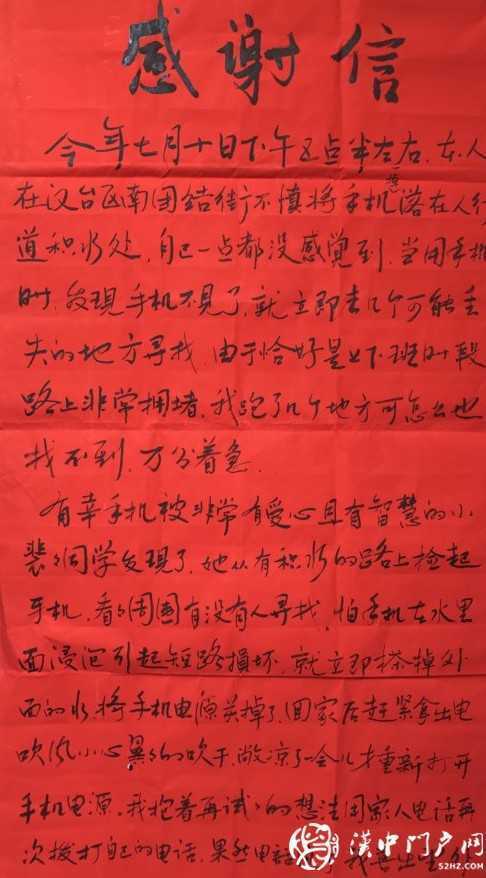 感谢信
今年七月十日下午五点半左右，本人
在汉台区南团结街不慎将手机落在人行
道积水处，自己一点都没感觉到，当用手机
时，发现手机不见了，就立即去几个可能丢
失的地方寻找，由于恰好是上下班时段
路上非常拥堵，我跑了几个地方可怎么也
找不到，万分着急。
有幸手机被非常有爱心且有智慧的小
裴同学发现了，她从有积水的路上捡起
手机，看看周围有没有人寻找，怕手机在水里
面浸泡引起短路损坏，就立即擦掉外
面的水，将手机电源关掉了，回家后赶紧拿出电
吹风小心翼翼的吹干，散凉了一会儿才重新打开
手机电源。我抱着再试试的想法用家人电话再
次拨打自己的电话，果然电话
汉中门户网
52HZ.COM